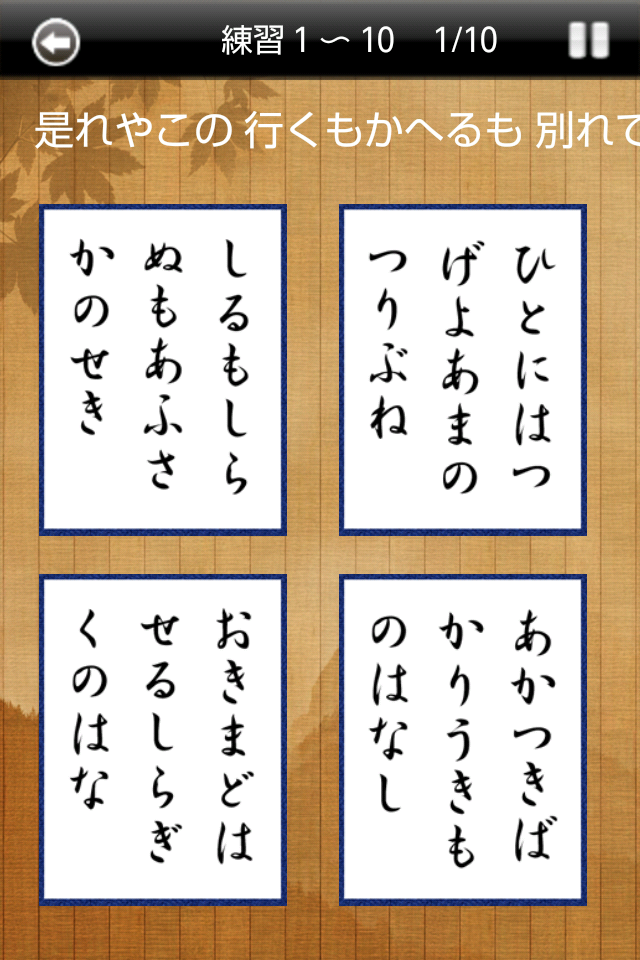 練習 1 〜 10 1/10
是れやこの 行くもかへるも 別れて
しるもしら
ぬもあふさ
かのせき
ひとにはつ
げよあまの
つりぶね
おきまどは
せるしらぎ
くのはな
あかつきば
かりうきも
のはなし